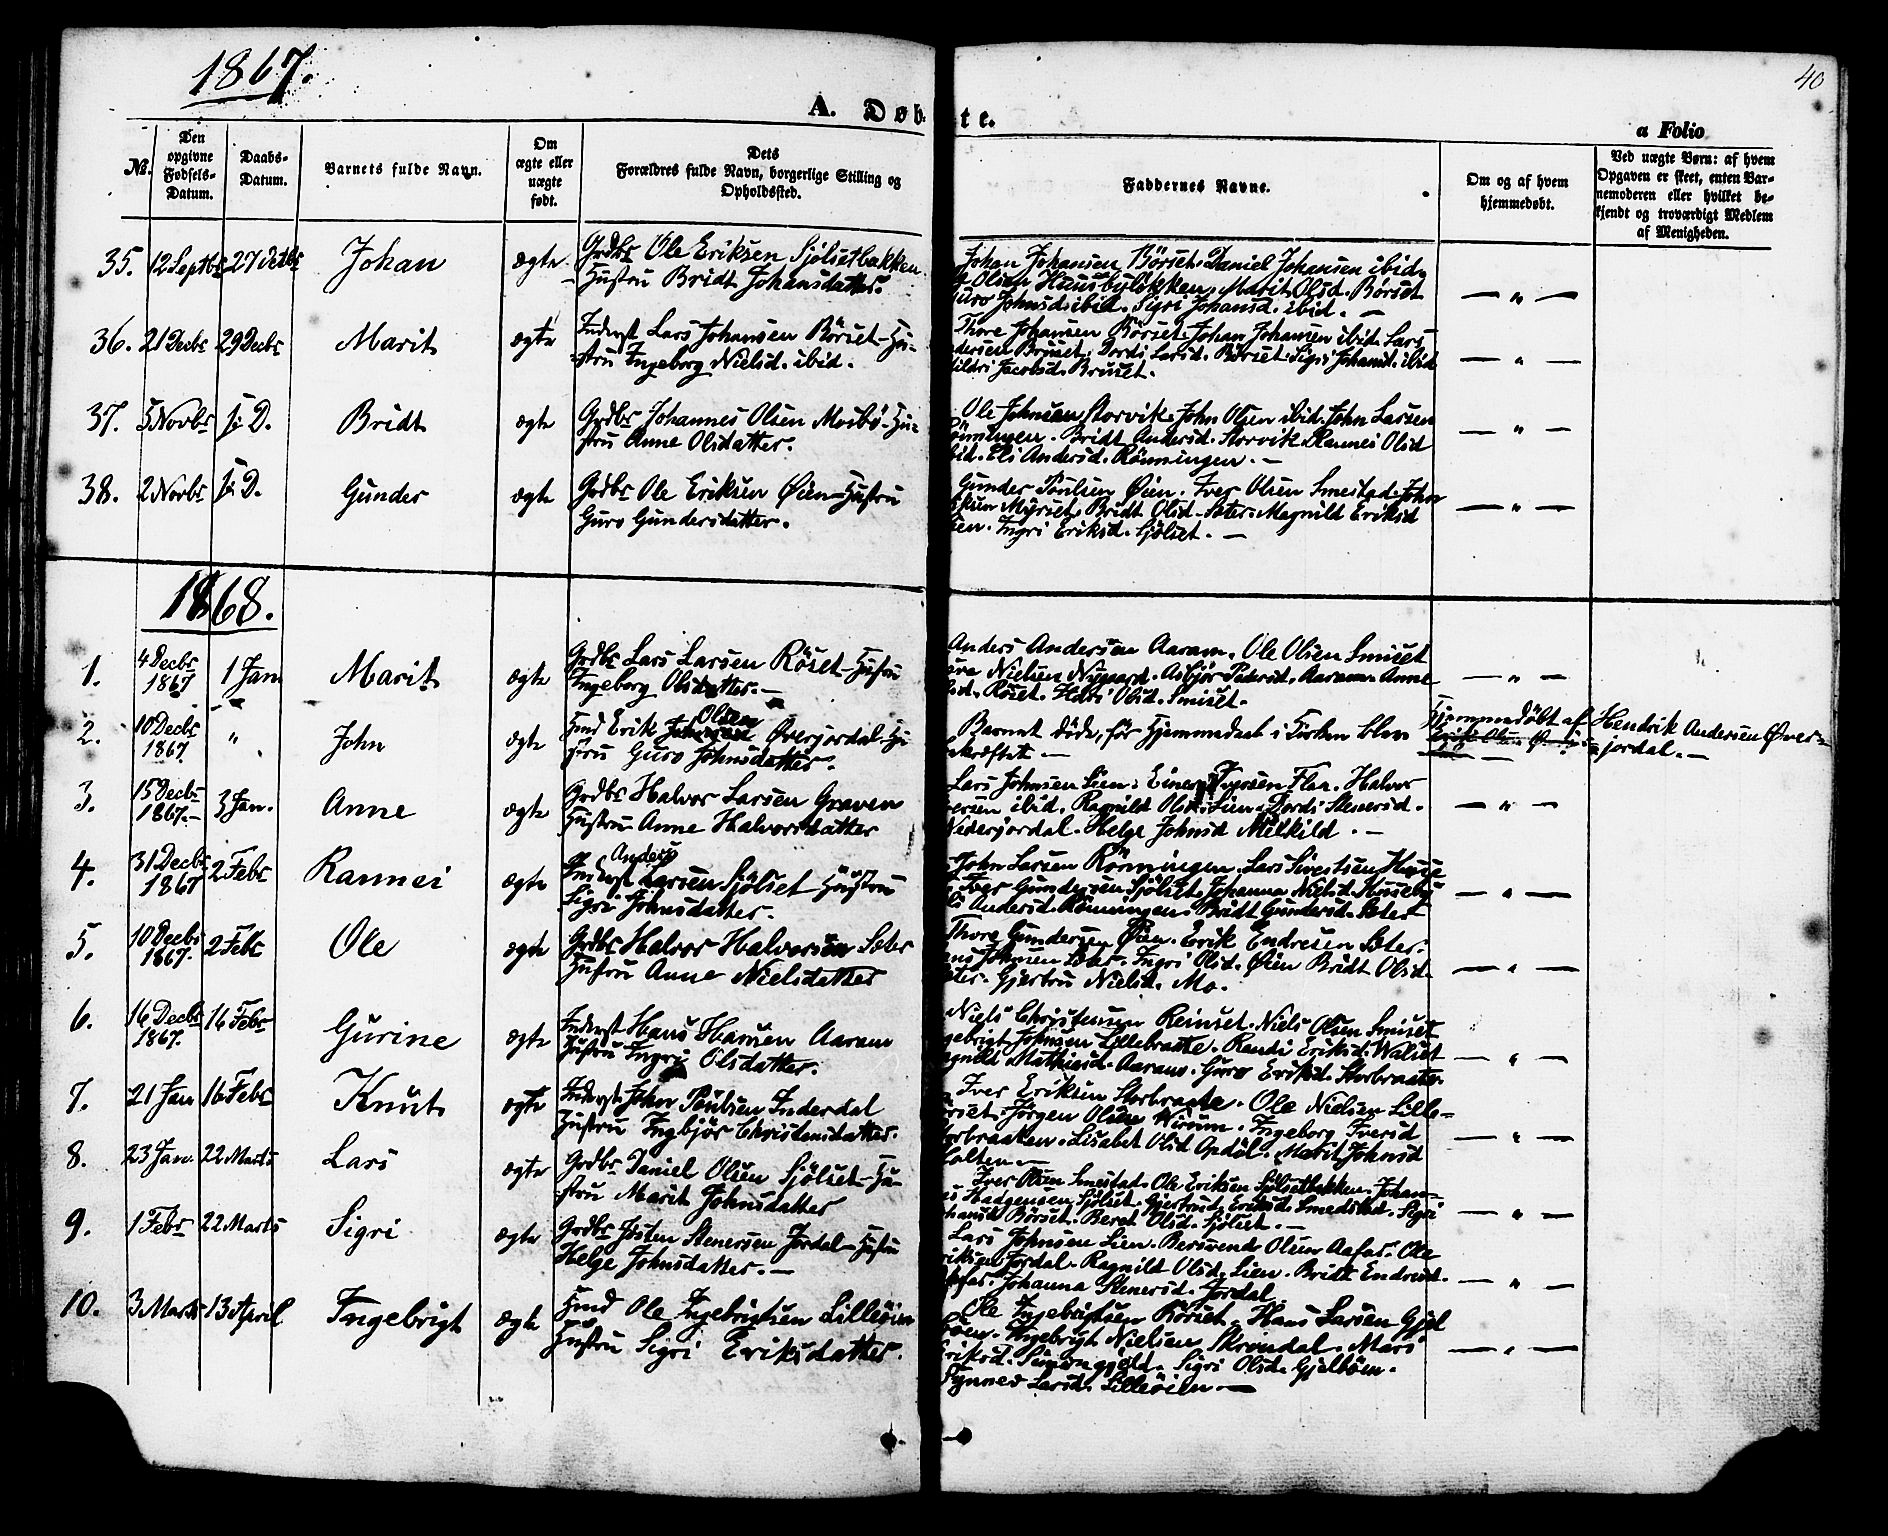 1867.
40
A. Døb-
te.
a Folio
No.
Den opgivne Fødsels-Datum.
Daabs-Datum.
Barnets fulde Navn.
Om ægte eller uægte født.
Dets Forældres fulde Navn, borgerlige Stilling og Opholdssted.
Faddernes Navne.
Om og af hvem hjemmedøbt.
Ved uægte Børn: af hvem Opgaven er skeet, enten Barnemoderen eller hvilket bekjendt og troværdigt Medlem af Menigheden.
35. 12 Septbr 27 Octbr Johan ægte Grdbr Ole Eriksen Sjölsetbakken
Hustru Bridt Johansdatter.
Johan Johansen Börset. Daniel Johansen ibid.
Olsen Huusbylökken. Marit Olsd. Börset
Guro Johnsd ibid. Sigri Johansd. ibid. —
— " —
36. 21 Decbr 29 Decbr Marit ægte Inderst Lars Johansen Börset - Hu-
stru Ingeborg Nielsd. ibid.
Thore Johansen Börset. Johan Johansen ibid. Lars
Bruset. Dordi Larsd. Börset. Sigri Johansd. ibid
Jacobsd. Bruset.
— " —
37. 5 Novbr s: D. Bridt ægte Grdbr Johannes Olsen Mosbö - Hu-
stru Anne Olsdatter.
Ole Johnsen Storvik. John Olsen ibid. John Larsen
Rönningen. Bridt Andersd. Storvik. Rannei Olsd
ibid. Eli Andersd. Rönningen. —
— " —
38. 2 Novbr s: D. Gunder ægte Grdbr Ole Eriksen Öien - Hustru
Guro Gundersdatter.
Gunder Poulsen Öien. Iver Olsen Smestad. John
Myrset. Bridt Olsd. Sæter. Magnild Eriksd
Öien. Ingri Eriksd. Sjölset. —
— " —
1868.
1. 4 Decbr 1867 1 Jan. Marit ægte Grdbr Lars Larsen Röset - Hustru
Ingeborg Olsdatter. —
Anders Andersen Aaram. Ole Olsen Smiset
Nielsen Nygaard. Asbjör Pedersd. Aaram. Anne
Olsd. Röset. Olsd. Smiset.
— " —
2. 10 Decbr 1867 " John ægte Hmd Erik Olsen Överjordal - Hu-
stru Guro Johnsdatter.
Barnet döde, för Hjemmedaab i Kirken blev
bekræftet —
Hjemmedöbt af Hendrik Andersen Över-
jordal. —
3. 15 Decbr 1867. 3 Jan. Anne ægte Grdbr Halvor Larsen Graven
Hustru Anne Halvorsdatter
Lars Johnsen Lien. Einer Iversen Flaa. Halvor
ibid. Ragnild Olsd. Lien. Dordi Stenersd.
Nederjordal. Helge Johnsd Melkild. —
— " —
4. 31 Decbr 1867 2 Febr Rannei ægte Inderst Anders Larsen Sjölset Hustru
Sigri Johnsdatter.
John Larsen Rönningen. Lars Sivertsen Husse
Iver Gundersen Sjölset. Johanna Nielsd. Husseby
Andersd. Rönningen. Bridt Gundersd. Sæter
— " —
5. 10 Decbr 1867. 2 Febr Ole ægte Grdbr Halvor Halvorsen Sæter
Hustru Anne Nielsdatter
Thore Gundersen Öien. Erik Endresen Sæter.
Johnsen Sæter. Ingri Olsd. Öien Bridt Olsd.
Sæter. Gjertru Nielsd. Mo.
— " —
6. 16 Decbr 1867. 16 Febr Gurine ægte Inderst Hans Hansen Aaram
Hustru Ingri Olsdatter.
Niels Christensen Reinset. Niels Olsen Smiset
Ingebrigt Johnsen Lillebraate. Randi Eriksd. Walset
Magnild Mathiasd. Aaram. Guro Eriksd. Storbraate.
— " —
7. 21 Jan 16 Febr Knut ægte Inderst John Poulsen Inderdal
Hustru Ingbjör Christensdatter.
Iver Eriksen Storbraate. Ole Nielsen Lille-
Jörgen Olsen Wirum. Ingeborg Iversd
Storbraaten. Lisabet Olsd Opdöl. Marit Johnsd
Holten —
— " —
8. 23 Jan. 22 Marts Lars ægte Grdbr Daniel Olsen Sjölset - Hu-
stru Marit Johnsdatter
Iver Olsen Smestad. Ole Eriksen Sjölsetbakken. Johan-
Sjölset. Gjertrud Eriksd. Smedstad. Sigri
Johansd. Börset. Beret Olsd. Sjölset. —
— " —
9. 1 Febr 22 Marts Sigri ægte Grdbr Josten Stenersen Jordal - Hustru
Helge Johnsdatter. —
Lars Johnsen Lien. Bersvend Olsen Aafar. Ole
Eriksen Jordal. Ragnild Olsd. Lien. Bridt Endresd.
Aafar. Johanna Stenersd. Jordal
— " —
10. 3 Marts 13 April Ingebrigt ægte Hmd Ole Ingebrigtsen Lilleöien
Hustru Sigri Eriksdatter.
Ole Ingebrigtsen Börset. Hans Larsen Gjel
böen. Ingebrigt Nielsen Skrondal. Mari
Eriksd. Simongjeld. Sigri Olsd. Gjelböen.
Synnev Larsd. Lilleöien —
— " —